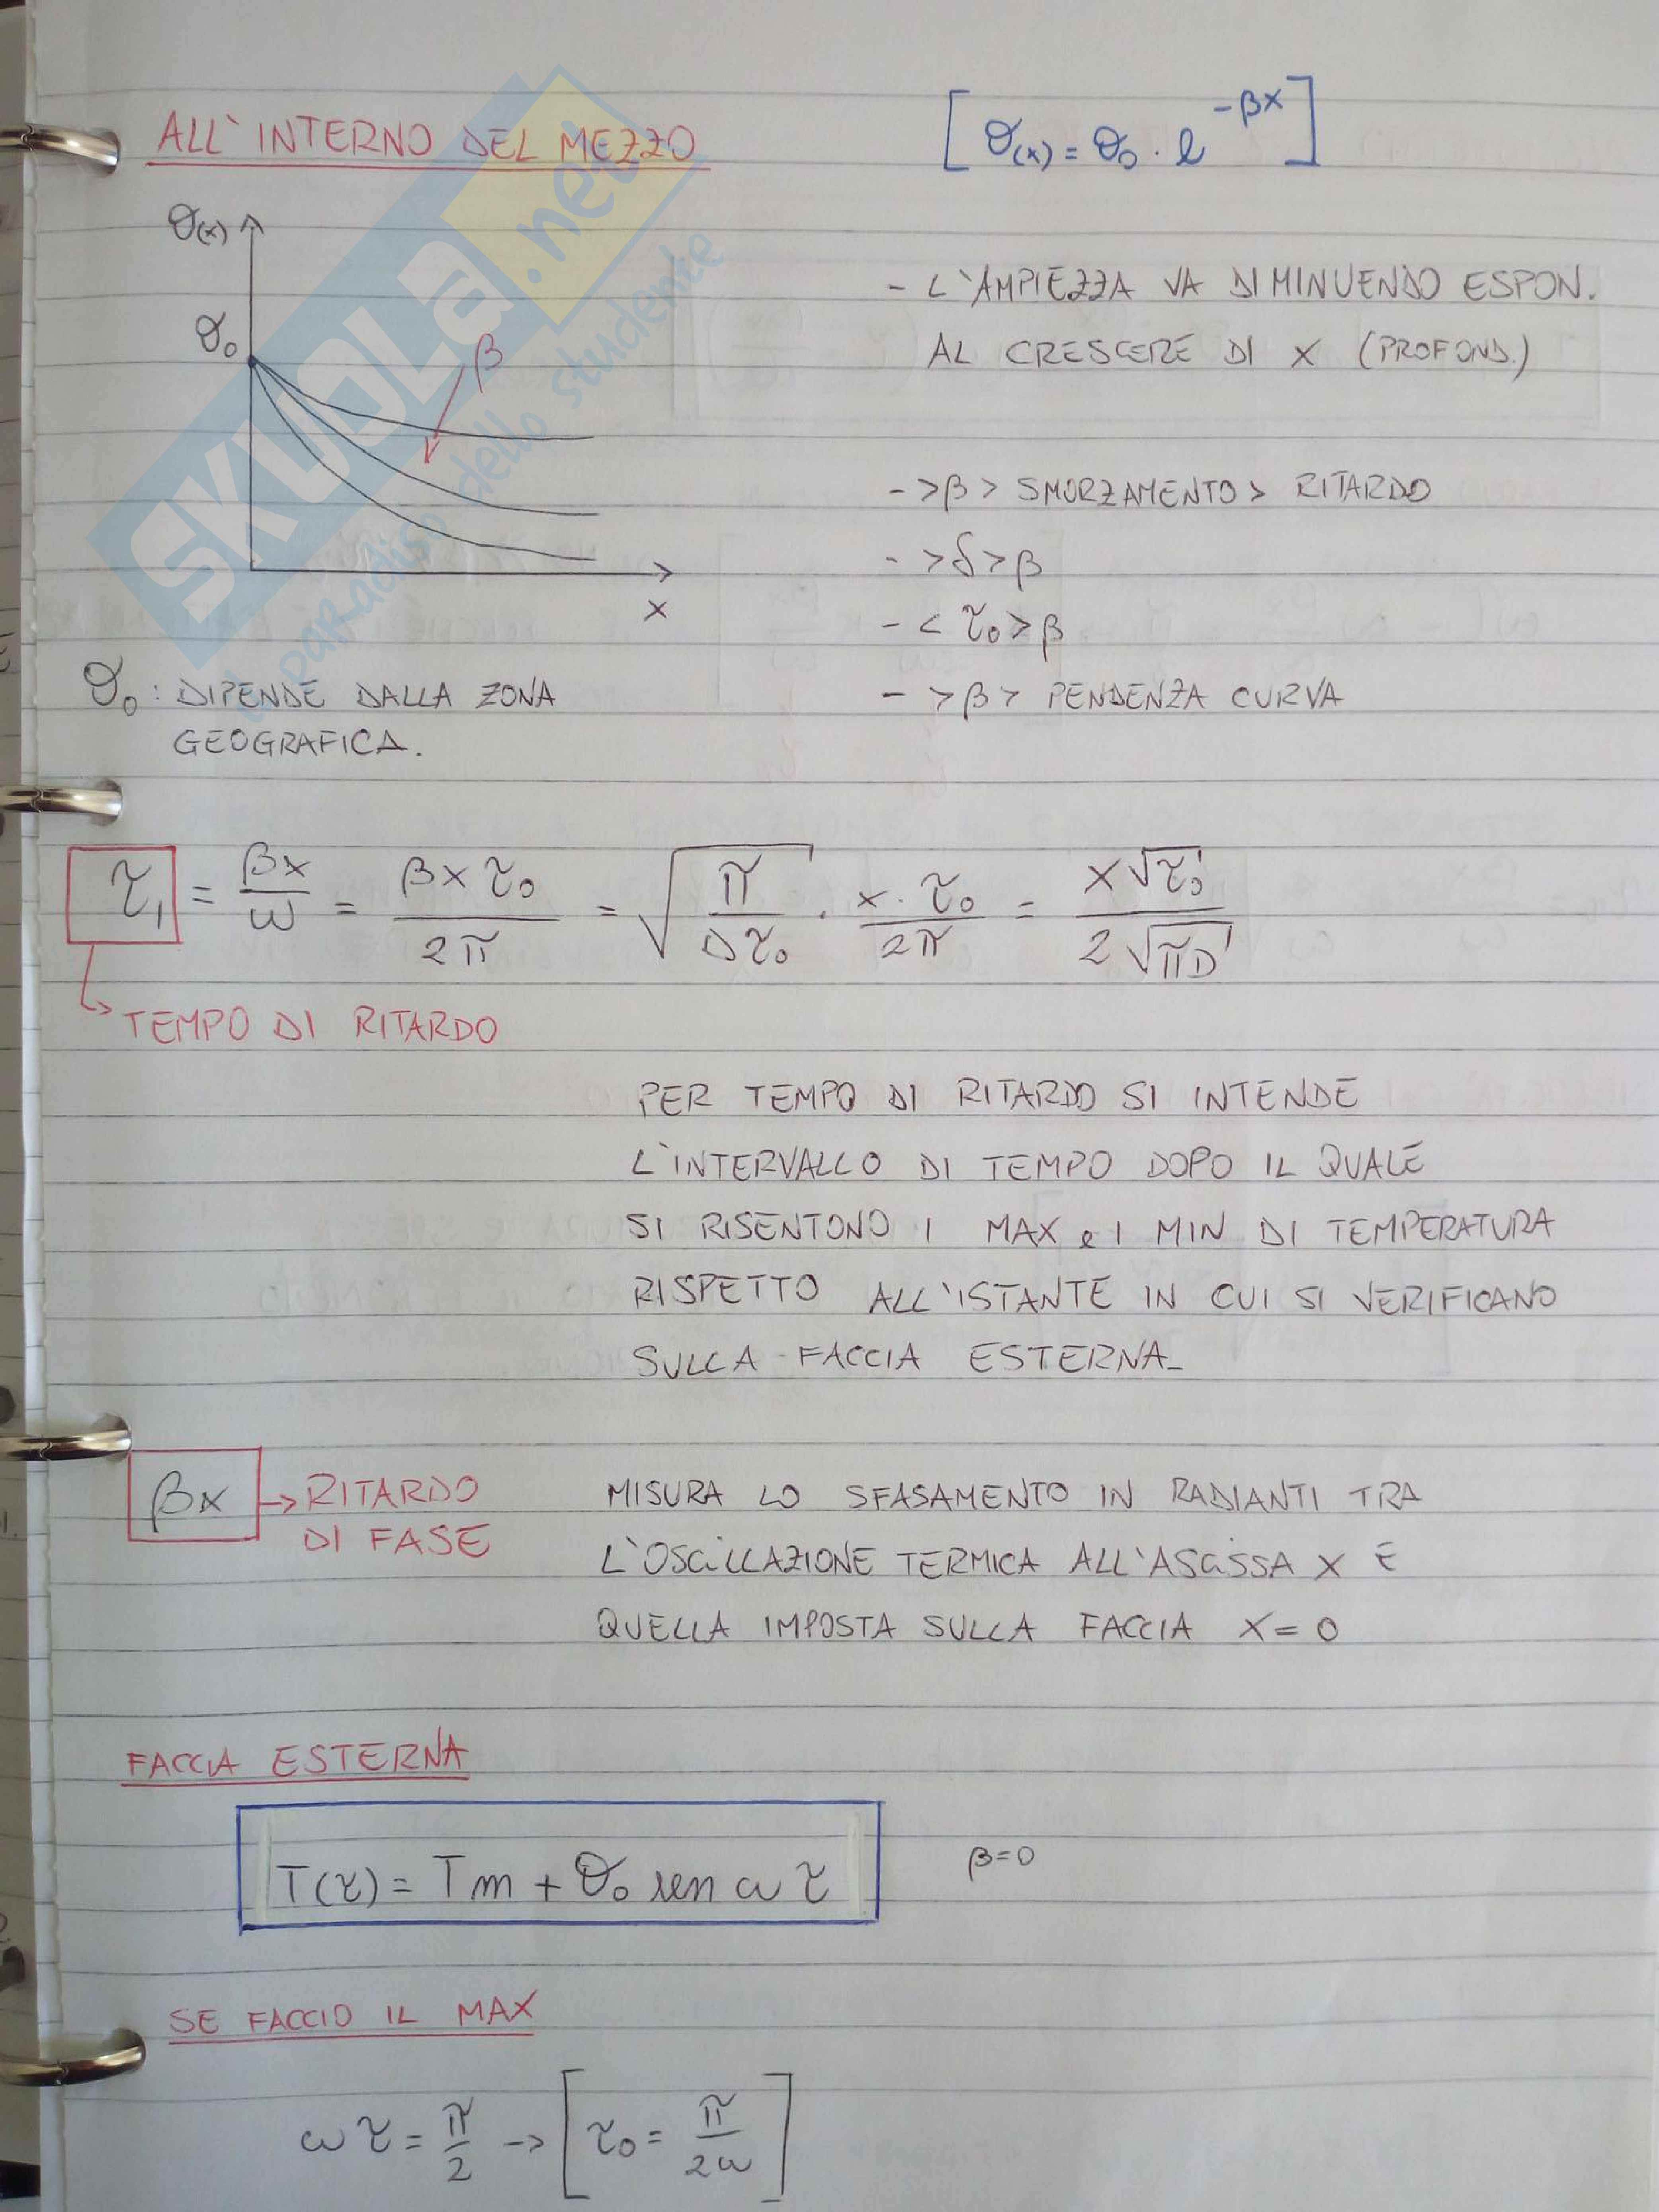 ALL'INTERNO DEL MEZZO
[ϑ(x) = ϑ₀ · e^-βx]
ϑ(x)
- L'AMPIEZZA VA DIMINUENDO ESPON.
AL CRESCERE DI X (PROFOND.)
ϑ₀
β
- >β > SMORZAMENTO > RITARDO
- >δ>β
- < τ₀>β
- >β > PENDENZA CURVA
x
ϑ₀ : DIPENDE DALLA ZONA
GEOGRAFICA.
τ₁ = βx/ω = βxτ₀/2π = √(π/Dτ₀) · x·τ₀/2π = x√τ₀/2√πD
TEMPO DI RITARDO
PER TEMPO DI RITARDO SI INTENDE
L'INTERVALLO DI TEMPO DOPO IL QUALE
SI RISENTONO I MAX e I MIN DI TEMPERATURA
RISPETTO ALL'ISTANTE IN CUI SI VERIFICANO
SULLA FACCIA ESTERNA_
βx → RITARDO
DI FASE
MISURA LO SFASAMENTO IN RADIANTI TRA
L'OSCILLAZIONE TERMICA ALL'ASCISSA X E
QUELLA IMPOSTA SULLA FACCIA X = 0
FACCIA ESTERNA
T(τ) = Tm + ϑ₀ sen ω τ
β=0
SE FACCIO IL MAX
ω τ = π/2 → [τ₀ = π/2ω]
SKUOLA.net
il paradiso dello studente